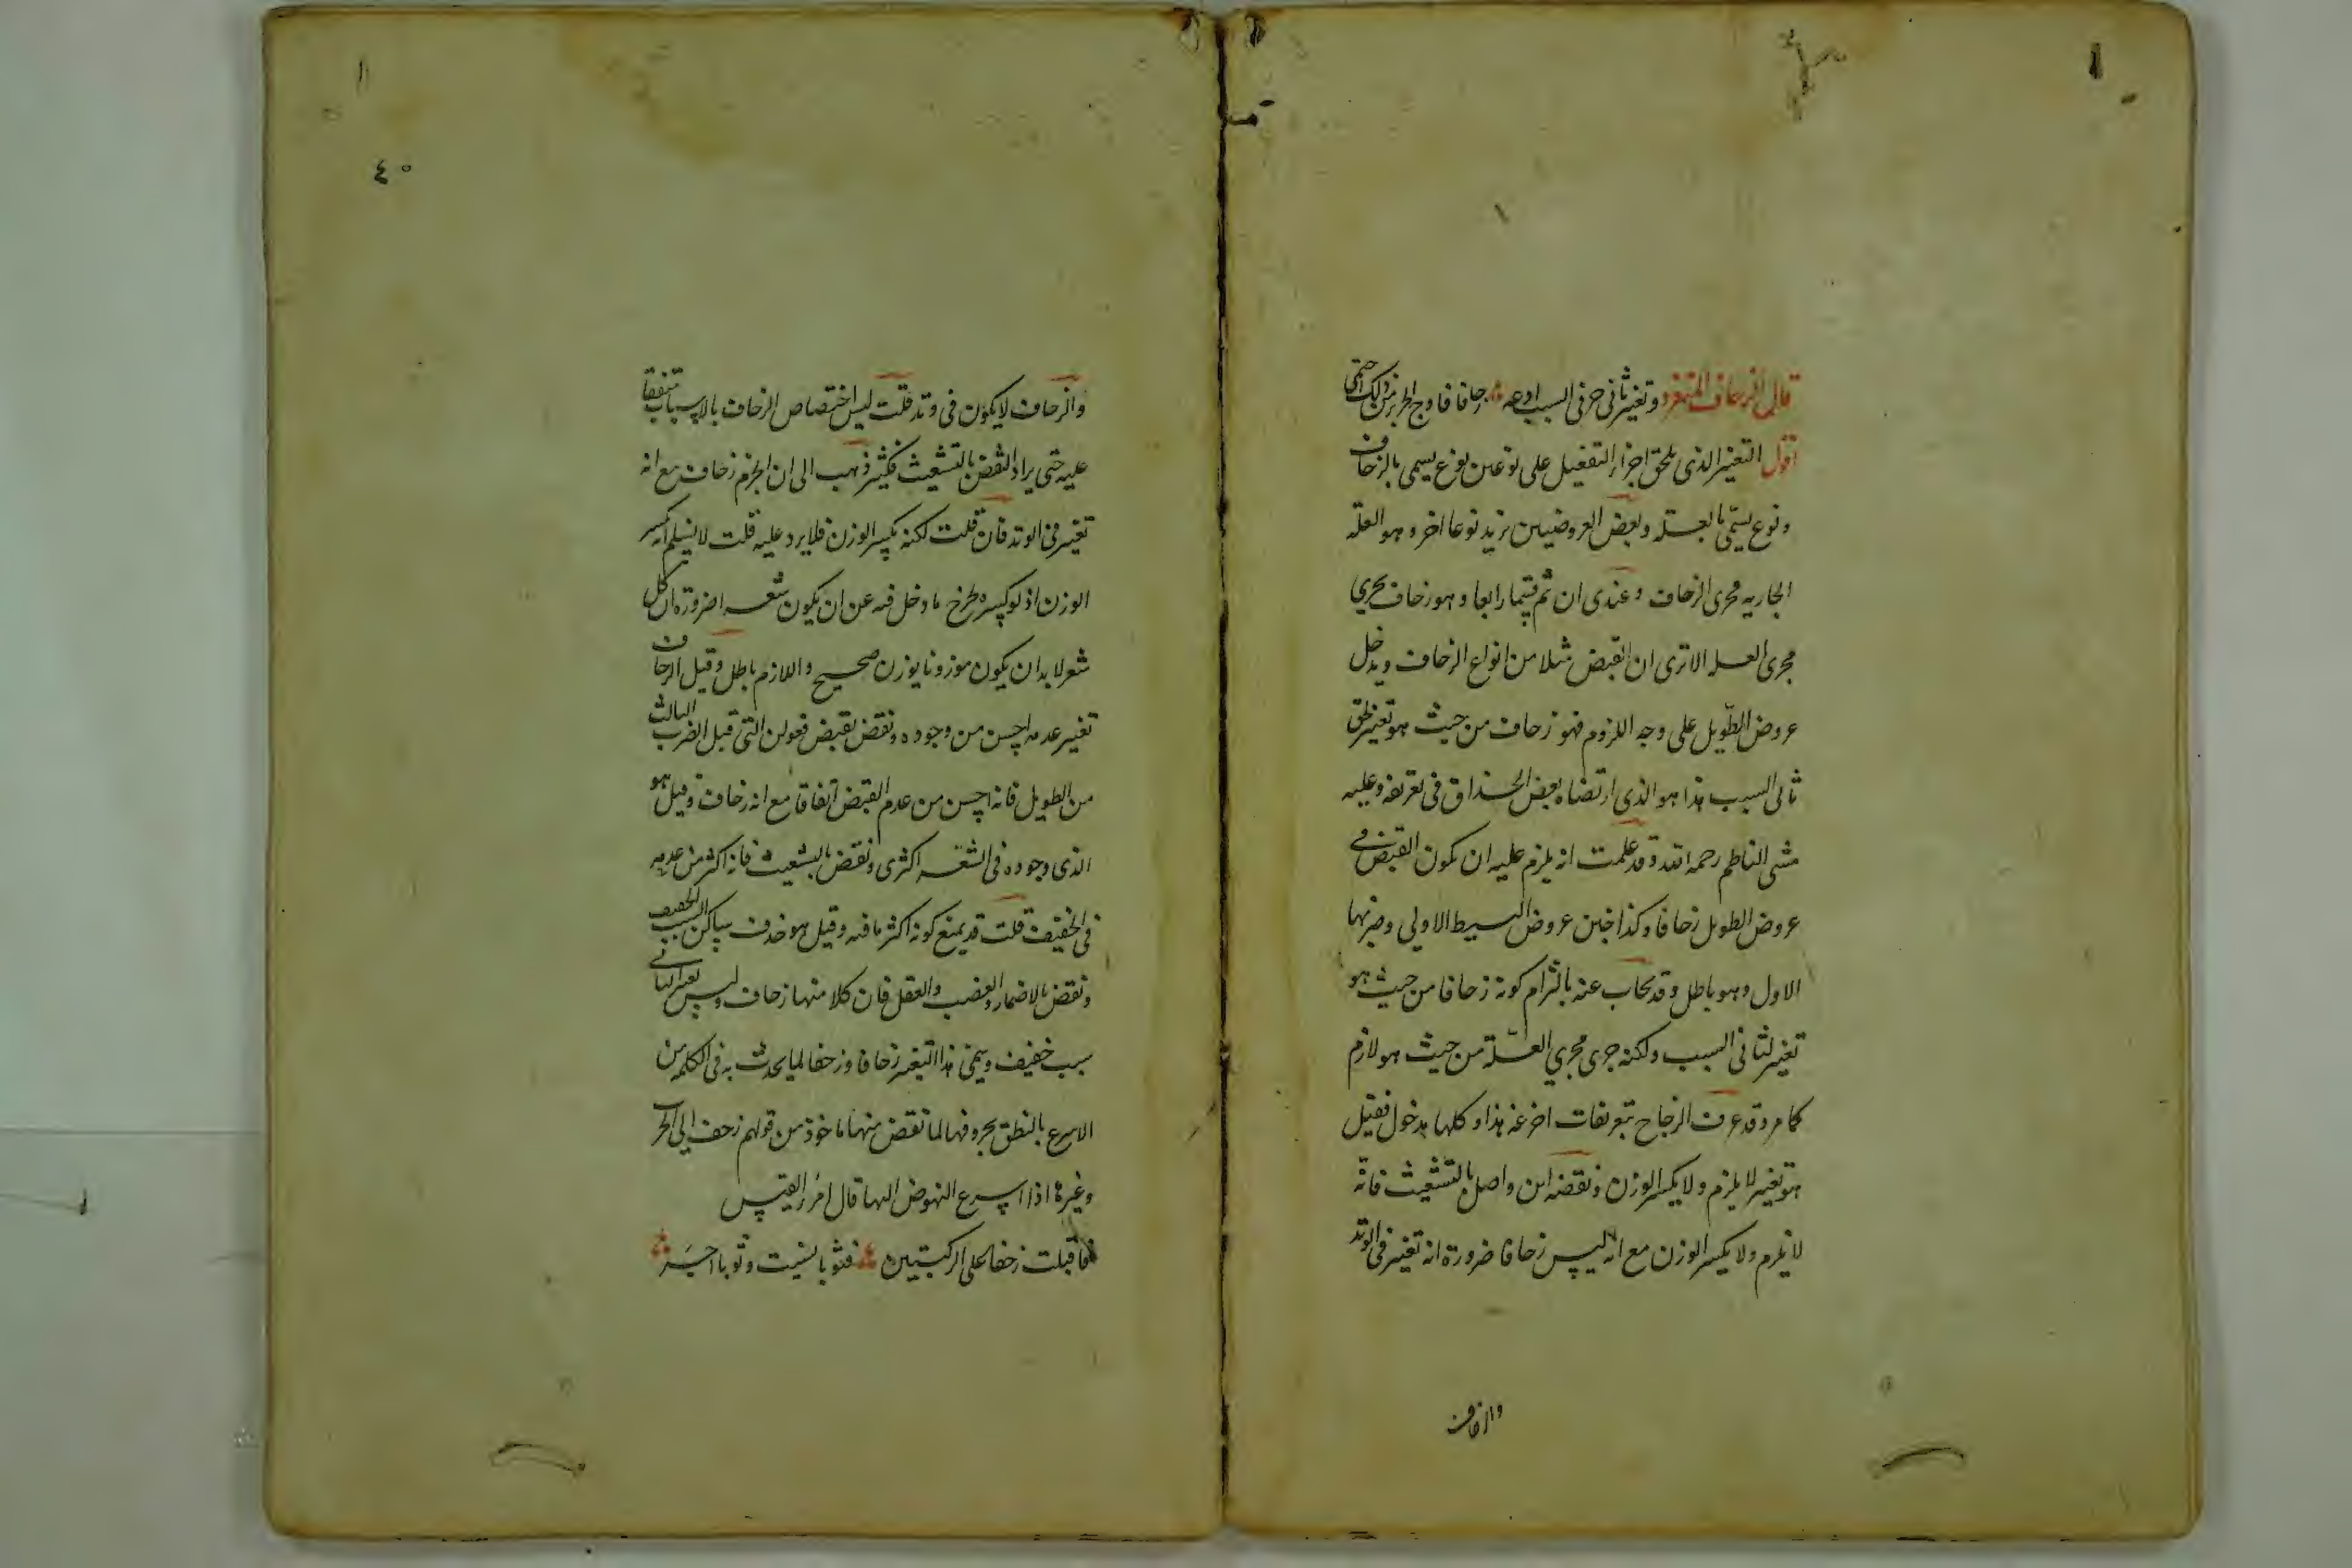 قال الزحاف المنفرد وتغيير ثاني حرفي السبب ادعه زحافا فاوج الجزء من ذلك احتمى
اقول التغيير الذي يلحق اجزاء التفعيل على نوعين نوع يسمى بالزحاف
ونوع يسمّى بالعلة وبعض العروضيين يزيد نوعا اخر وهو العلة
الجارية مجرى الزحاف وعندي ان ثم قسما رابعا وهو زحاف يجري
مجرى العلة الا ترى ان القبض مثلا من انواع الزحاف ويدخل
عروض الطّويل على وجه اللزوم فهو زحاف من حيث هو تغيير لحق
ثاني السبب هذا هو الذي ارتضاه بعض الحذاق في تعريفه وعليه
مشى الناظم رحمه الله وقد علمت انه يلزم عليه ان يكون القبض في
عروض الطويل زحافا وكذا خبن عروض البسيط الاولى وضربها
الاول وهو باطل وقد يجاب عنه بالتزام كونه زحافا من حيث هو
تغيير لثاني السبب ولكنه جرى مجرى العلّة من حيث هو لازم
كما مر وقد عرف الزحاف بتعريفات اخر غير هذا وكلها مدخول فقيل
هو تغيير لا يلزم ولا يكسر الوزن ونقضه ابن واصل بالتشعيث فانه
لا يلزم ولا يكسر الوزن مع انه ليس زحافا ضرورة انه تغيير في الوتد
والزحاف
٤٠
والزحاف لا يكون في وتد قلت ليس اختصاص الزحاف بالاسباب متفقا
عليه حتى يراد النقض بالتشعيث فكثير ذهب الى ان الخرم زحاف مع انه
تغيير في الوتد فان قلت لكنه يكسر الوزن فلا يرد عليه قلت لا نسلم انه يكسر
الوزن اذ لو كسره لخرج ما دخل فيه عن ان يكون شعرا ضرورة ان كل
شعر لا بد ان يكون موزونا بوزن صحيح واللازم باطل وقيل الزحاف
تغيير عدمه احسن من وجوده ونقض بقبض فعولن التي قبل الضرب الثالث
من الطويل فانه احسن من عدم القبض اتفاقا مع انه زحاف وقيل هو
الذي وجوده في الشعر اكثري ونقض بالتشعيث فانه اكثر من عدمه
في الخفيف قلت قد يمنع كونه اكثر ما فيه وقيل هو حذف ساكن السبب الخفيف
ونقض بالاضمار والعصب والعقل فان كلا منها زحاف وليس بتغيير لثاني
سبب خفيف ويسمى هذا التغيير زحافا وزحفا لما يحدث به في الكلمة من
الاسرع بالنطق بحروفها لما نقض منها ماخوذ من قولهم زحف الى الحر
وغيرها اذا اسرع النهوض اليها قال امرؤ القيس
فاقبلت زحفا على الركبتين فثوبا نسيت وثوبا اجر